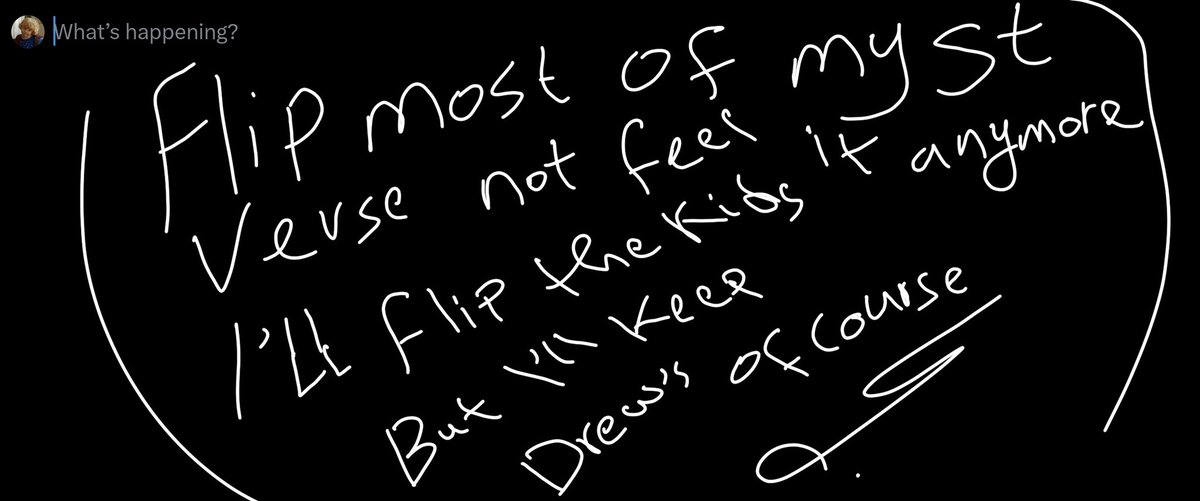 What's happening?
Flip most of my st
verse not feel it anymore
I'll flip the kids
But I'll keep
Drew's of course